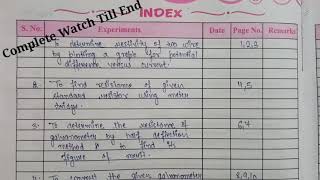 Complete Watch Till End
INDEX
S. No. Experiments Date Page No. Remarks
To determine resistivity of two wire 1,2,3
by plotting a graph for potential
difference versus current.
2. To find resistance of given 4,5
standard resistor using meter
bridge.
3. To determine the resistance of 6,7
galvanometer by half deflection
method & to find its
figure of merit.
To convert the given galvanometer 8,9,10